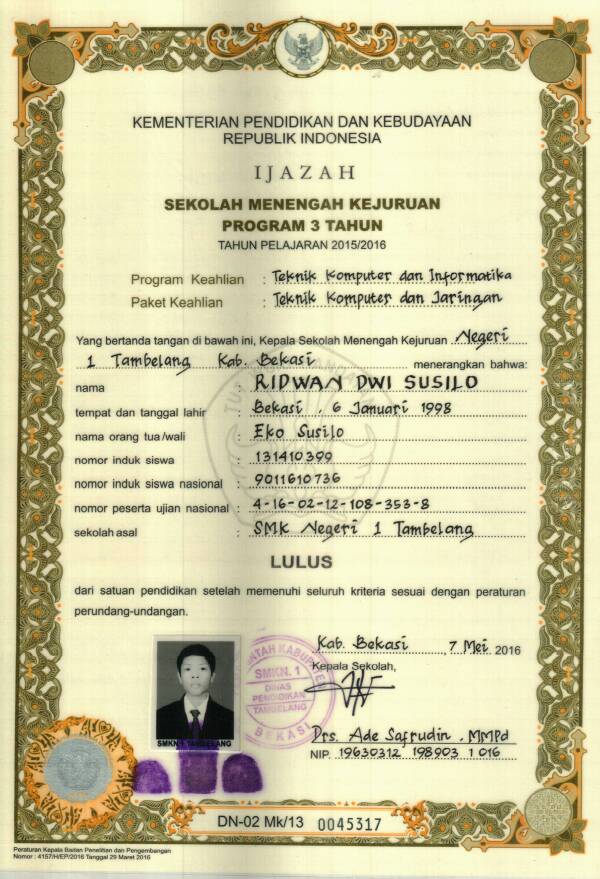 KEMENTERIAN PENDIDIKAN DAN KEBUDAYAAN
REPUBLIK INDONESIA
IJAZAH
SEKOLAH MENENGAH KEJURUAN
PROGRAM 3 TAHUN
TAHUN PELAJARAN 2015/2016
Program Keahlian : Teknik Komputer dan Informatika
Paket Keahlian : Teknik Komputer dan Jaringan
Yang bertanda tangan di bawah ini, Kepala Sekolah Menengah Kejuruan Negeri
1 Tambelang Kab. Bekasi menerangkan bahwa:
nama : RIDWAN DWI SUSILO
tempat dan tanggal lahir : Bekasi, 6 Januari 1998
nama orang tua/wali : Eko Susilo
nomor induk siswa : 131410399
nomor induk siswa nasional : 9011610736
nomor peserta ujian nasional : 4-16-02-12-108-353-8
sekolah asal : SMK Negeri 1 Tambelang
LULUS
dari satuan pendidikan setelah memenuhi seluruh kriteria sesuai dengan peraturan
perundang-undangan.
Kab. Bekasi, 7 Mei 2016
Kepala Sekolah,
SMKN. 1
DINAS
PENDIDIKAN
TAMBELANG
BEKASI
SMKN 1 TAMBELANG
Drs. Ade Safrudin, MMPd
NIP. 19630312 198903 1 016
DN-02 Mk/13 0045317
Peraturan Kepala Badan Penelitian dan Pengembangan
Nomor : 4157/H/EP/2016 Tanggal 29 Maret 2016